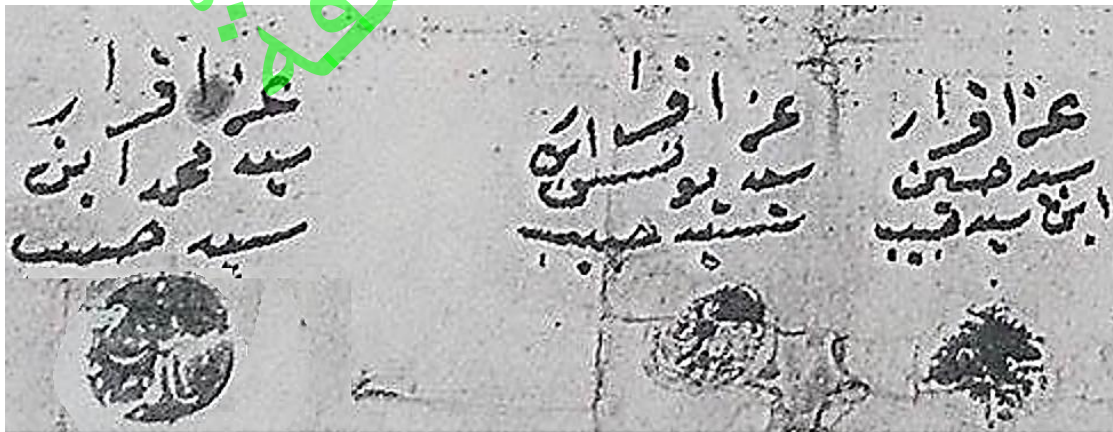 عز اقرار
سيد حسين
ابن سيد حبيب
عز اقرار
سيد يوسف ابن
سيد حبيب
عز اقرار
سيد محمد ابن
سيد حبيب